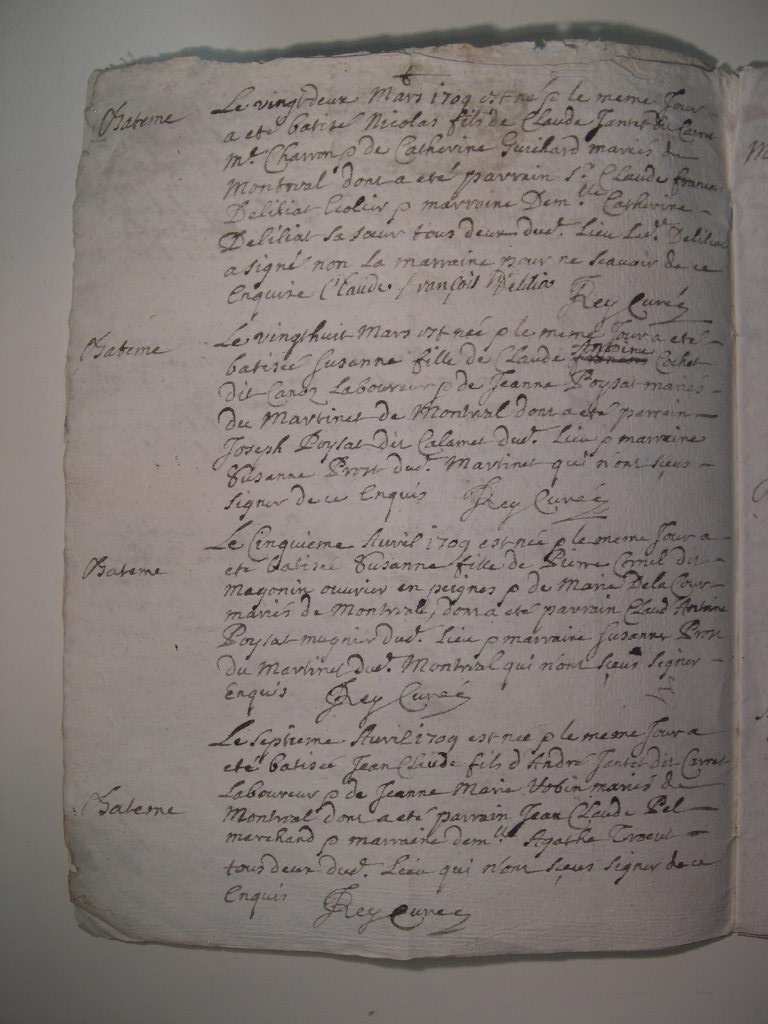 Bateme
Le vingtdeux Mars 1709 est né & le meme Jour
a eté batisé Nicolas fils de Claude Jantet du Carret
m.e Charron & de Catherine Guichard mariés de
Montreal dont a eté parrain s.r Claude francois
Delilias & marraine Dem.lle Catherine
Delilias sa sœur tous deux dud.t Lieu Led.t Delilias
a signé non La marraine pour ne scavoir de ce
Enquise Claude François
Rey Curé
Bateme
Le vingthuit Mars est née & le meme Jour a eté
batisée Susanne fille de Claude Antoine Cochet
dit Canoz Laboureur & de Jeanne Poysat mariés
du Martinet de Montreal dont a eté parrain
Joseph Poysat dit Calamet dud.t Lieu & marraine
Susanne Prost dud.t Martinet qui n'ont sçeus
signer de ce Enquis Rey Curé
Bateme
Le Cinquieme Avril 1709 est née & le meme Jour a
eté batisée Susanne fille de Pierre Cornil dit
Magonin ouvrier en peignes & de Marie De la Cour
mariés de Montreal, dont a eté parrain Claud Antoine
Poysat mugnier dud.t Lieu & marraine Susanne Prost
du Martinet dud.t Montreal qui n'ont sçeus signer
Enquis Rey Curé
Le septieme Avril 1709 est née & le meme Jour a
eté batisée Jean Claude fils d'André Jantet dit Carret
Bateme
Laboureur & de Jeanne Marie Vobin mariés de
Montreal dont a eté parrain Jean Claude Pel
marchand & marraine dem.lle Agathe
tous deux dud.t Lieu qui n'ont sçeus signer de ce
Enquis Rey Curé